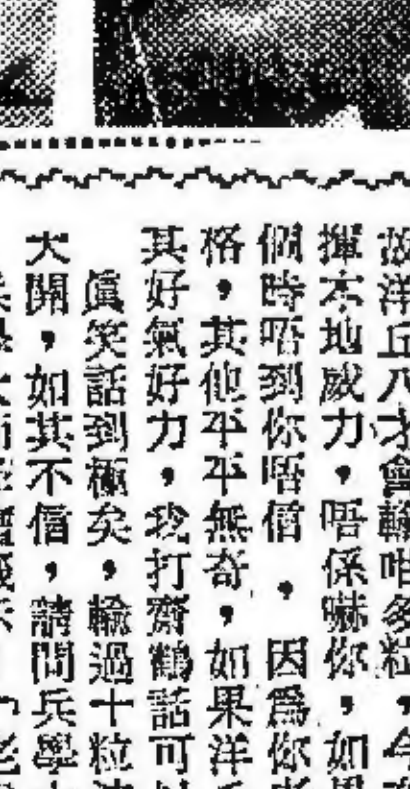 故洋丘八才會輸咁多粒，今
揮本地威力，唔係嚇你，如果
個時唔到你唔信，因爲你
格，其他平平無奇，如果洋
其好氣好力，我打齋鶴話可
眞笑話到極矣，輸過十粒
大開，如其不信，請問兵學